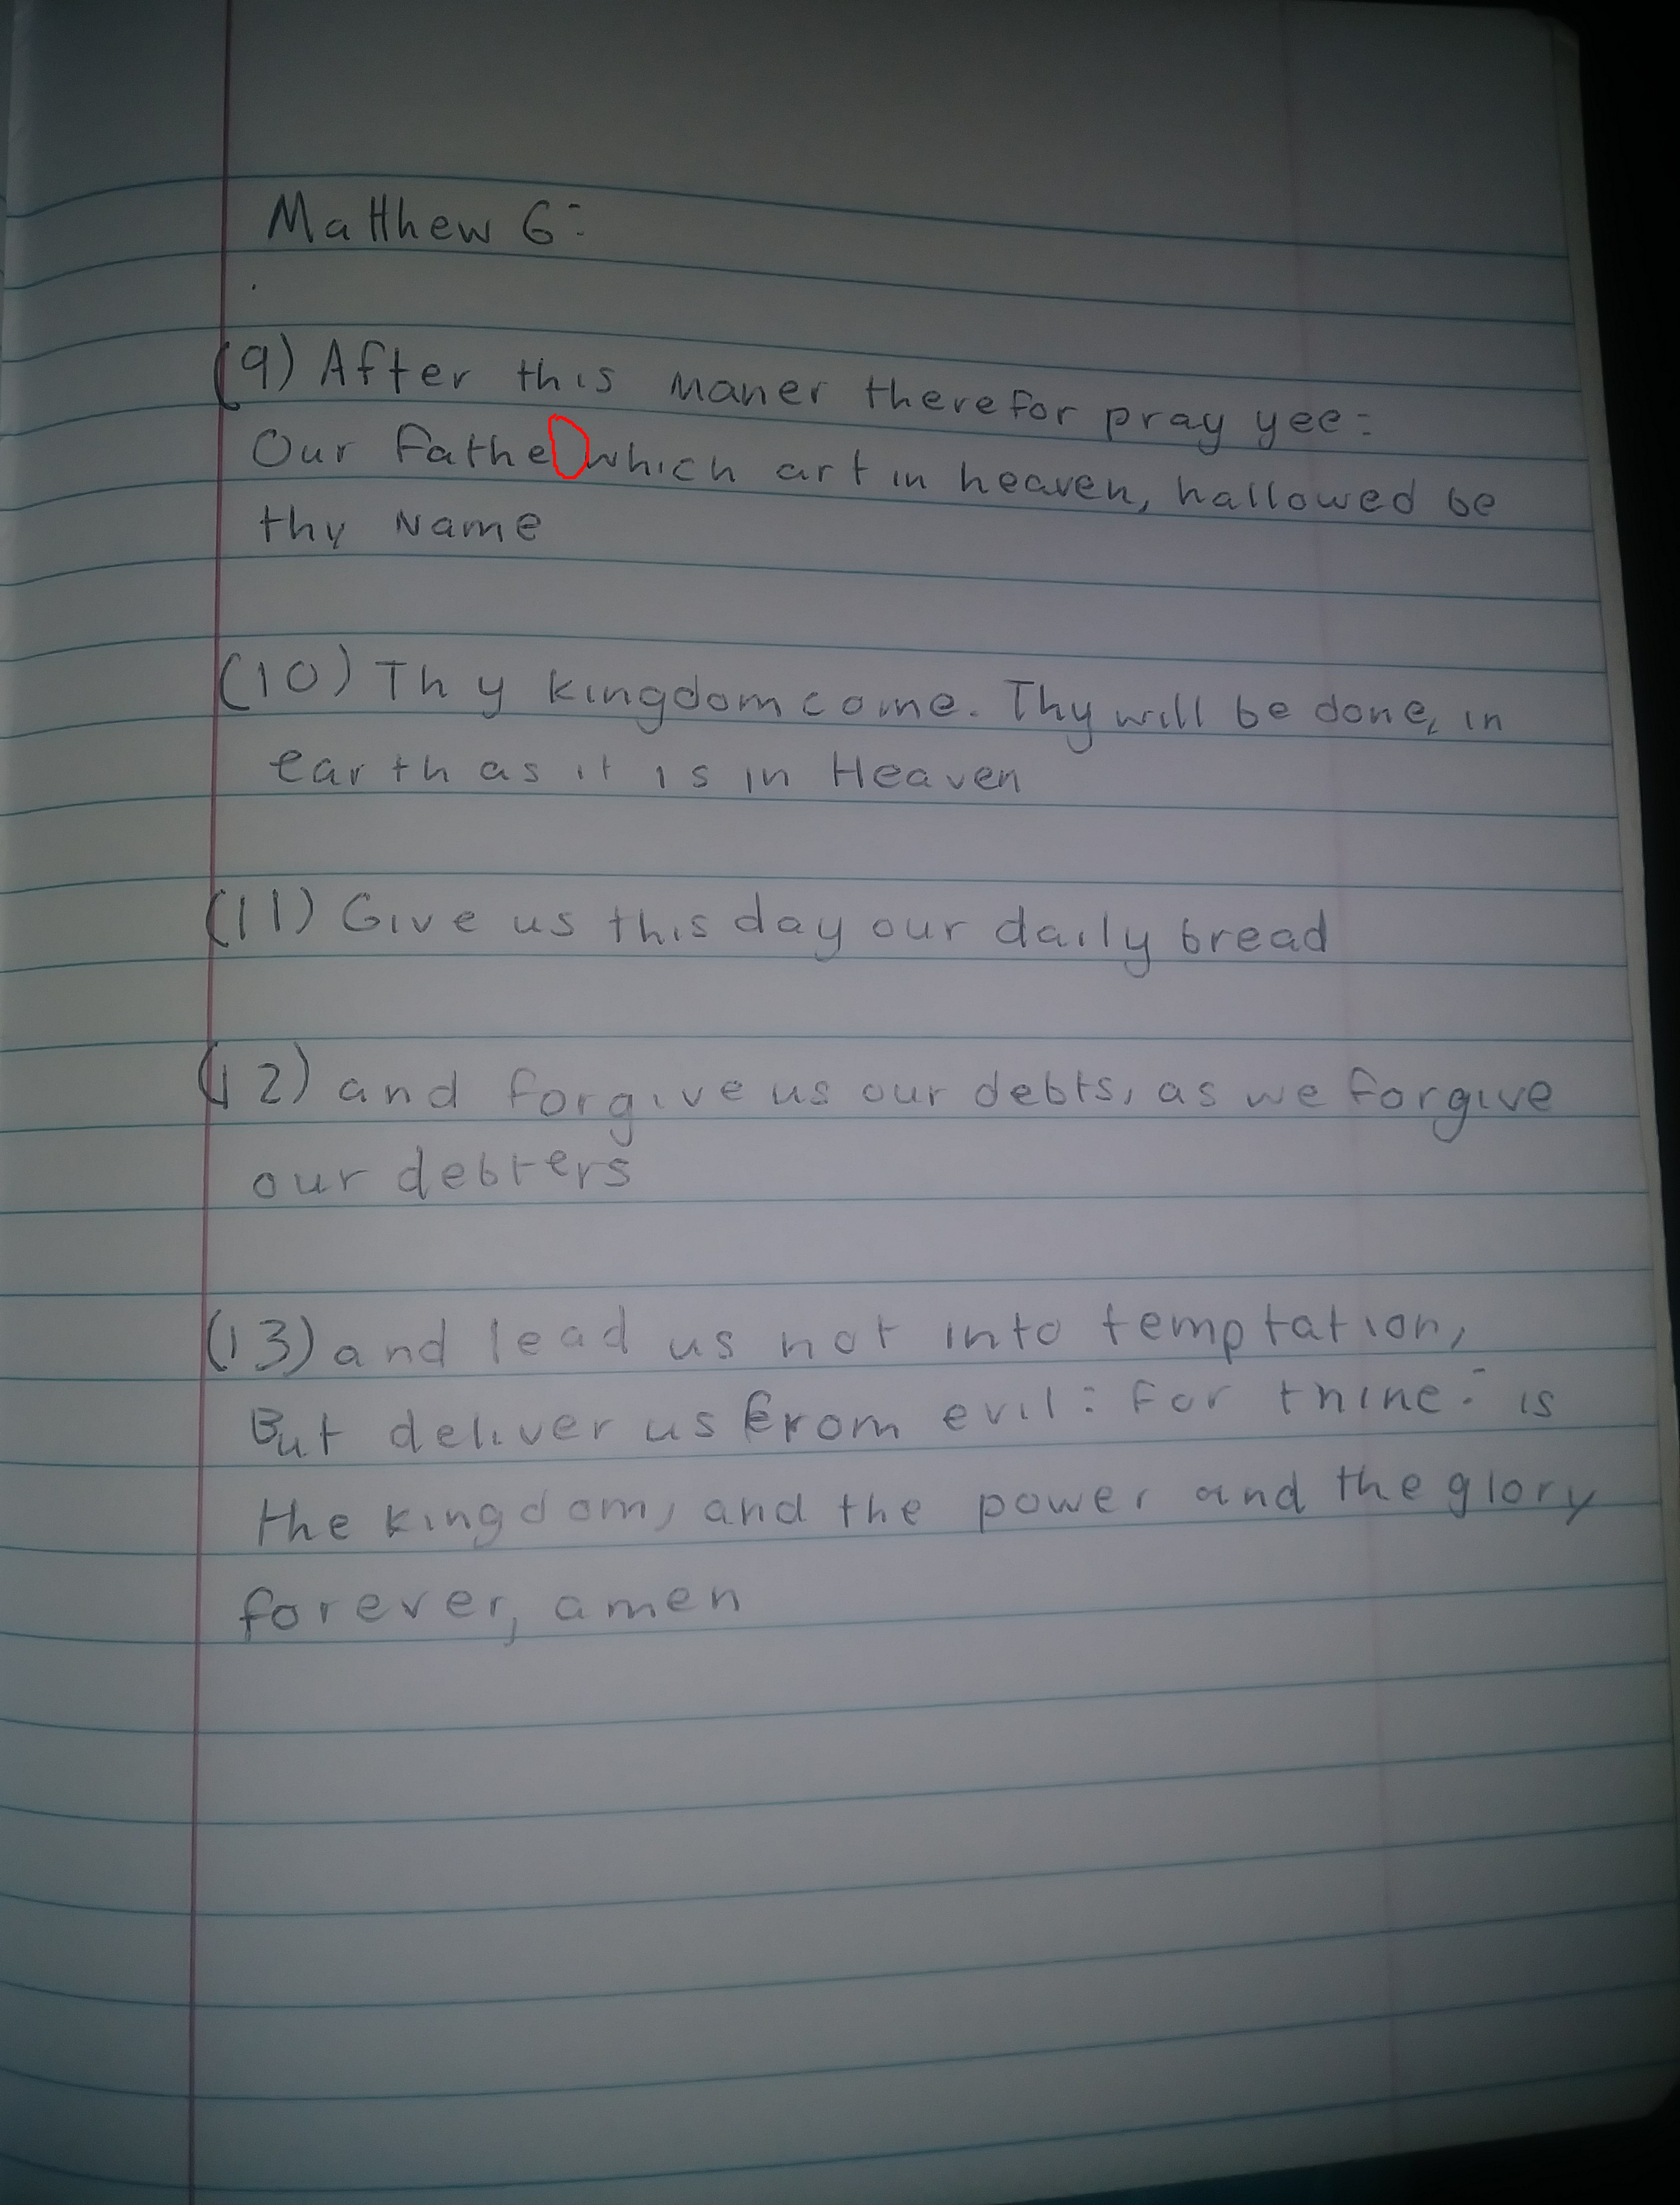 Matthew 6:
(9) After this maner therefor pray yee:
Our Fathe which art in heaven, hallowed be
thy Name
(10) Thy kingdom come. Thy will be done, in
earth as it is in Heaven
(11) Give us this day our daily bread
(12) and forgive us our debts, as we forgive
our debters
(13) and lead us not into temptation,
But deliver us from evil: For thine: is
the kingdom, and the power and the glory
forever, amen